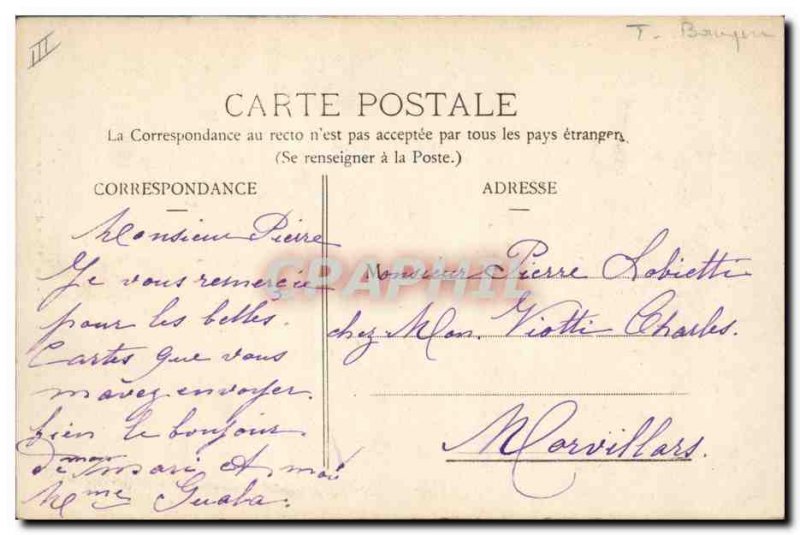 III
T. 
CARTE POSTALE
La Correspondance au recto n'est pas acceptée par tous les pays étrangers
(Se renseigner à la Poste.)
CORRESPONDANCE
Monsieur Pierre
Je vous remercie
pour les belles.
Cartes que vous
mavez envoyer.
bien le bonjour.
de mon mari et moi
Mme Guala.
ADRESSE
Monsieur Pierre Lobietti
chez Mon. Viotti Charles.
Morvillars.
CPAPHIL